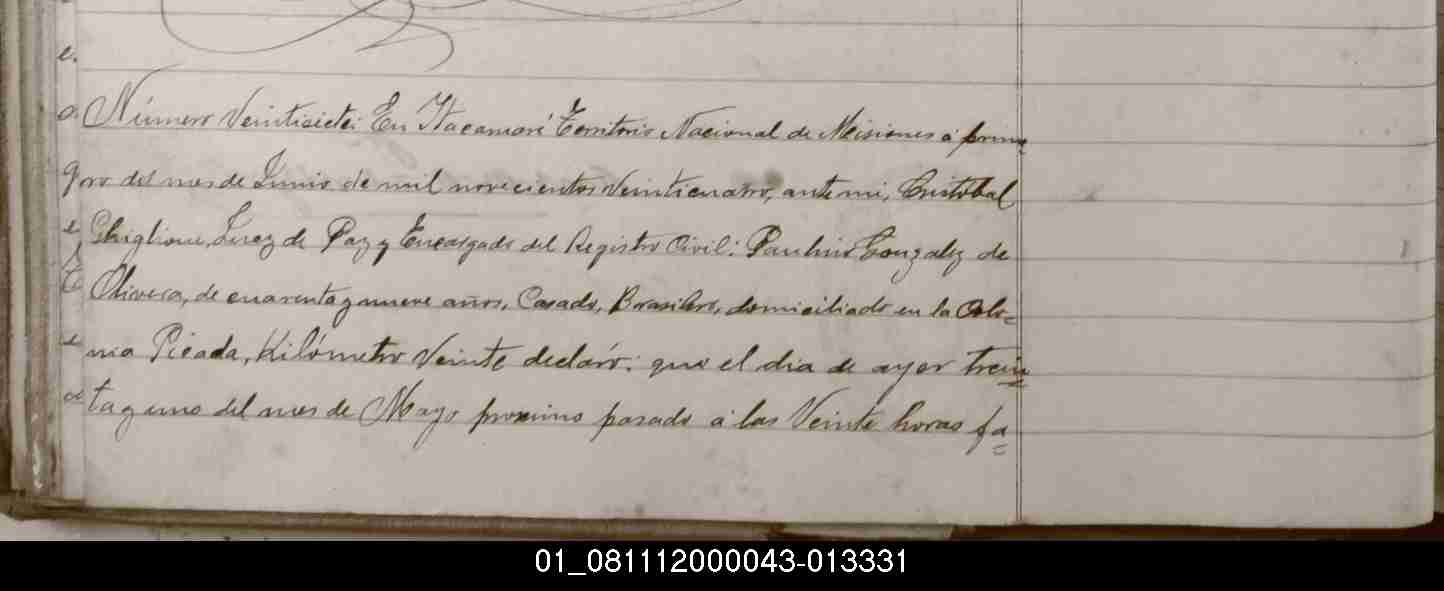 Número Veintisiete: En Itacaruaré Territorio Nacional de Misiones á prime=
ro del mes de Junio de mil novecientos Veinticuatro, ante mi, Cristóbal
Ghiglione, Juez de Paz y Encargado del Registro Civil: Paulino Gonzalez de
Olivera, de cuarenta y nueve años, Casado, Brasilero, domiciliado en la Colo=
nia Picada, Kilómetro Veinte declaró: que el dia de ayer trein=
ta y uno del mes de Mayo proximo pasado á las Veinte horas fa=
01_081112000043-013331